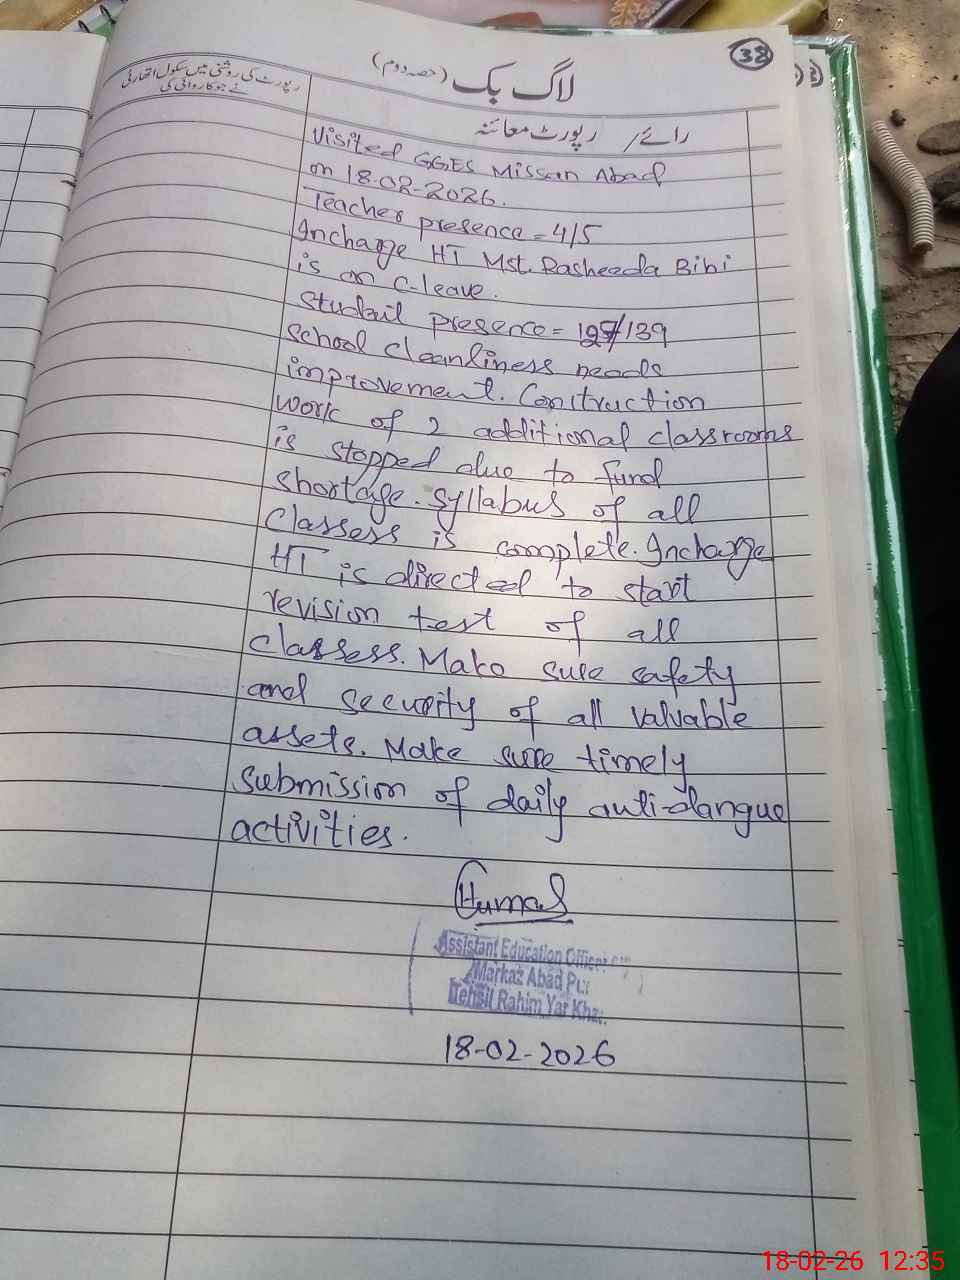 38
لاگ بک (حصہ دوم)
رپورٹ کی روشنی میں سکول اتھارٹی
نے جو کاروائی کی
رائے / رپورٹ معائنہ
Visited GGES Missan Abad
on 18-02-2026.
Teacher presence = 4/5
Incharge HT Mst. Rasheeda Bibi
is on C-leave.
Student presence = /139
School cleanliness needs
improvement. Construction
work of 2 additional classrooms
is stopped due to fund
shortage. Syllabus of all
classess is complete. Incharge
HT is directed to start
revision test of all
classess. Make sure safety
and security of all valuable
assets. Make sure timely
submission of daily anti-dangue
activities.
Assistant Education Officer
Markaz Abad Pur
Tehsil Rahim Yar Khan
18-02-2026
18-02-26 12:35